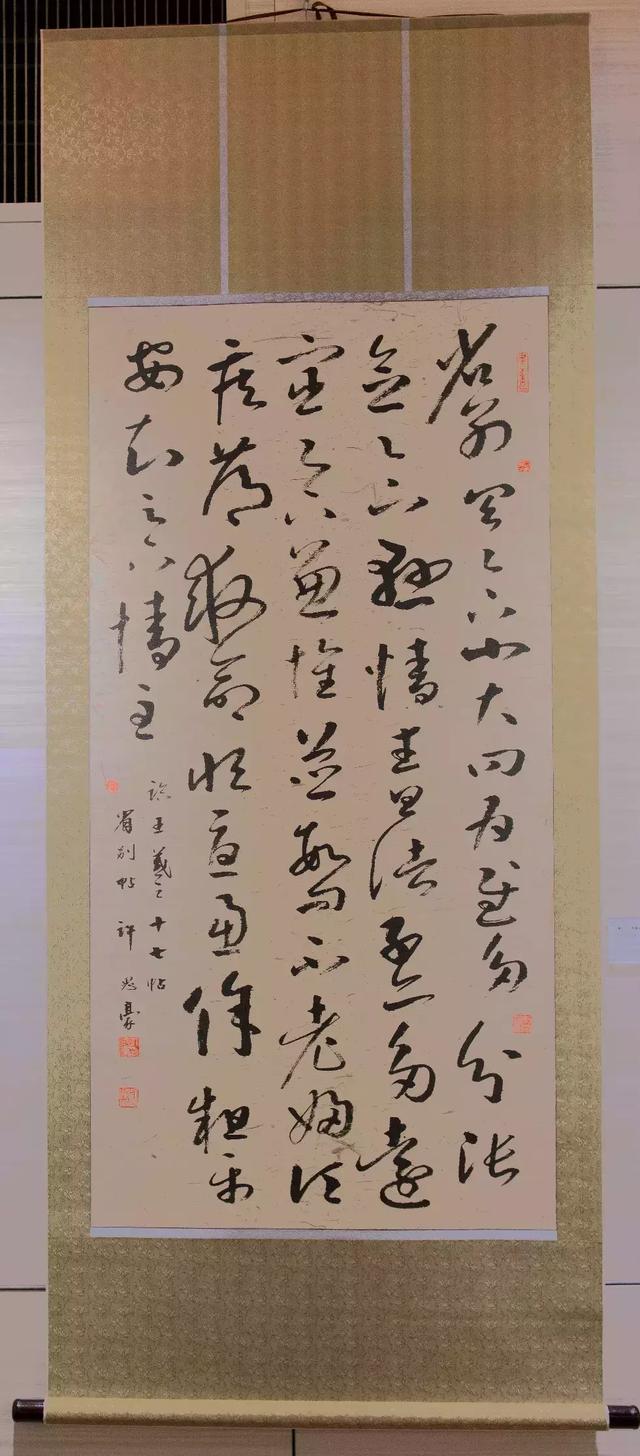 省別具足下小大問為慰多分張
念足下懸情武昌諸子亦多遠
宦足下兼懷並數問不老婦頃
疾篤救命恒憂慮餘粗平
安知足下情至
臨王羲之十七帖
省別帖 許豪